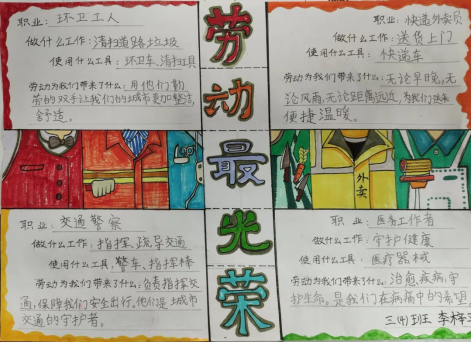 职业: 环卫工人
做什么工作: 清扫道路垃圾
使用什么工具: 环卫车、清扫工具
劳动为我们带来了什么: 用他们勤
劳的双手让我们的城市更加整洁,
舒适。
劳动最光荣
职业: 快递外卖员
做什么工作: 送货上门
使用什么工具: 快递车
劳动为我们带来了什么: 无论早晚,无
论风雨,无论距离远近,为我们送来
便捷温暖。
外卖
职业: 交通警察
做什么工作: 指挥、疏导交通
使用什么工具: 警车、指挥棒
劳动为我们带来了什么: 负责指挥交
通,保障我们安全出行,他们是城市
交通的守护者。
职业: 医务工作者
做什么工作: 守护健康
使用什么工具: 医疗器械
劳动为我们带来了什么: 治愈疾病,守
护生命。是我们在病痛中的希望
三(4)班 李梓